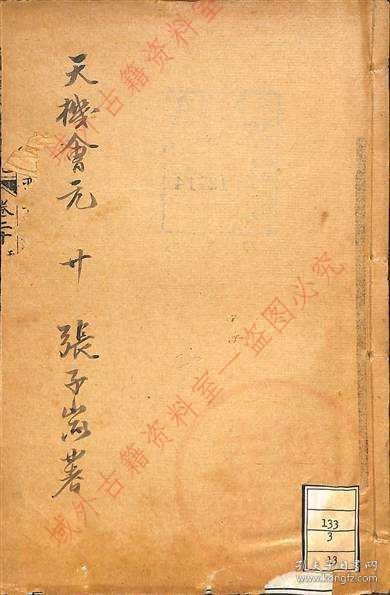 天機會元 廿 張子嵐著
卷二十
域外古籍资料室
域外古籍资料室—盗图必究
133
3
孔夫子旧书网